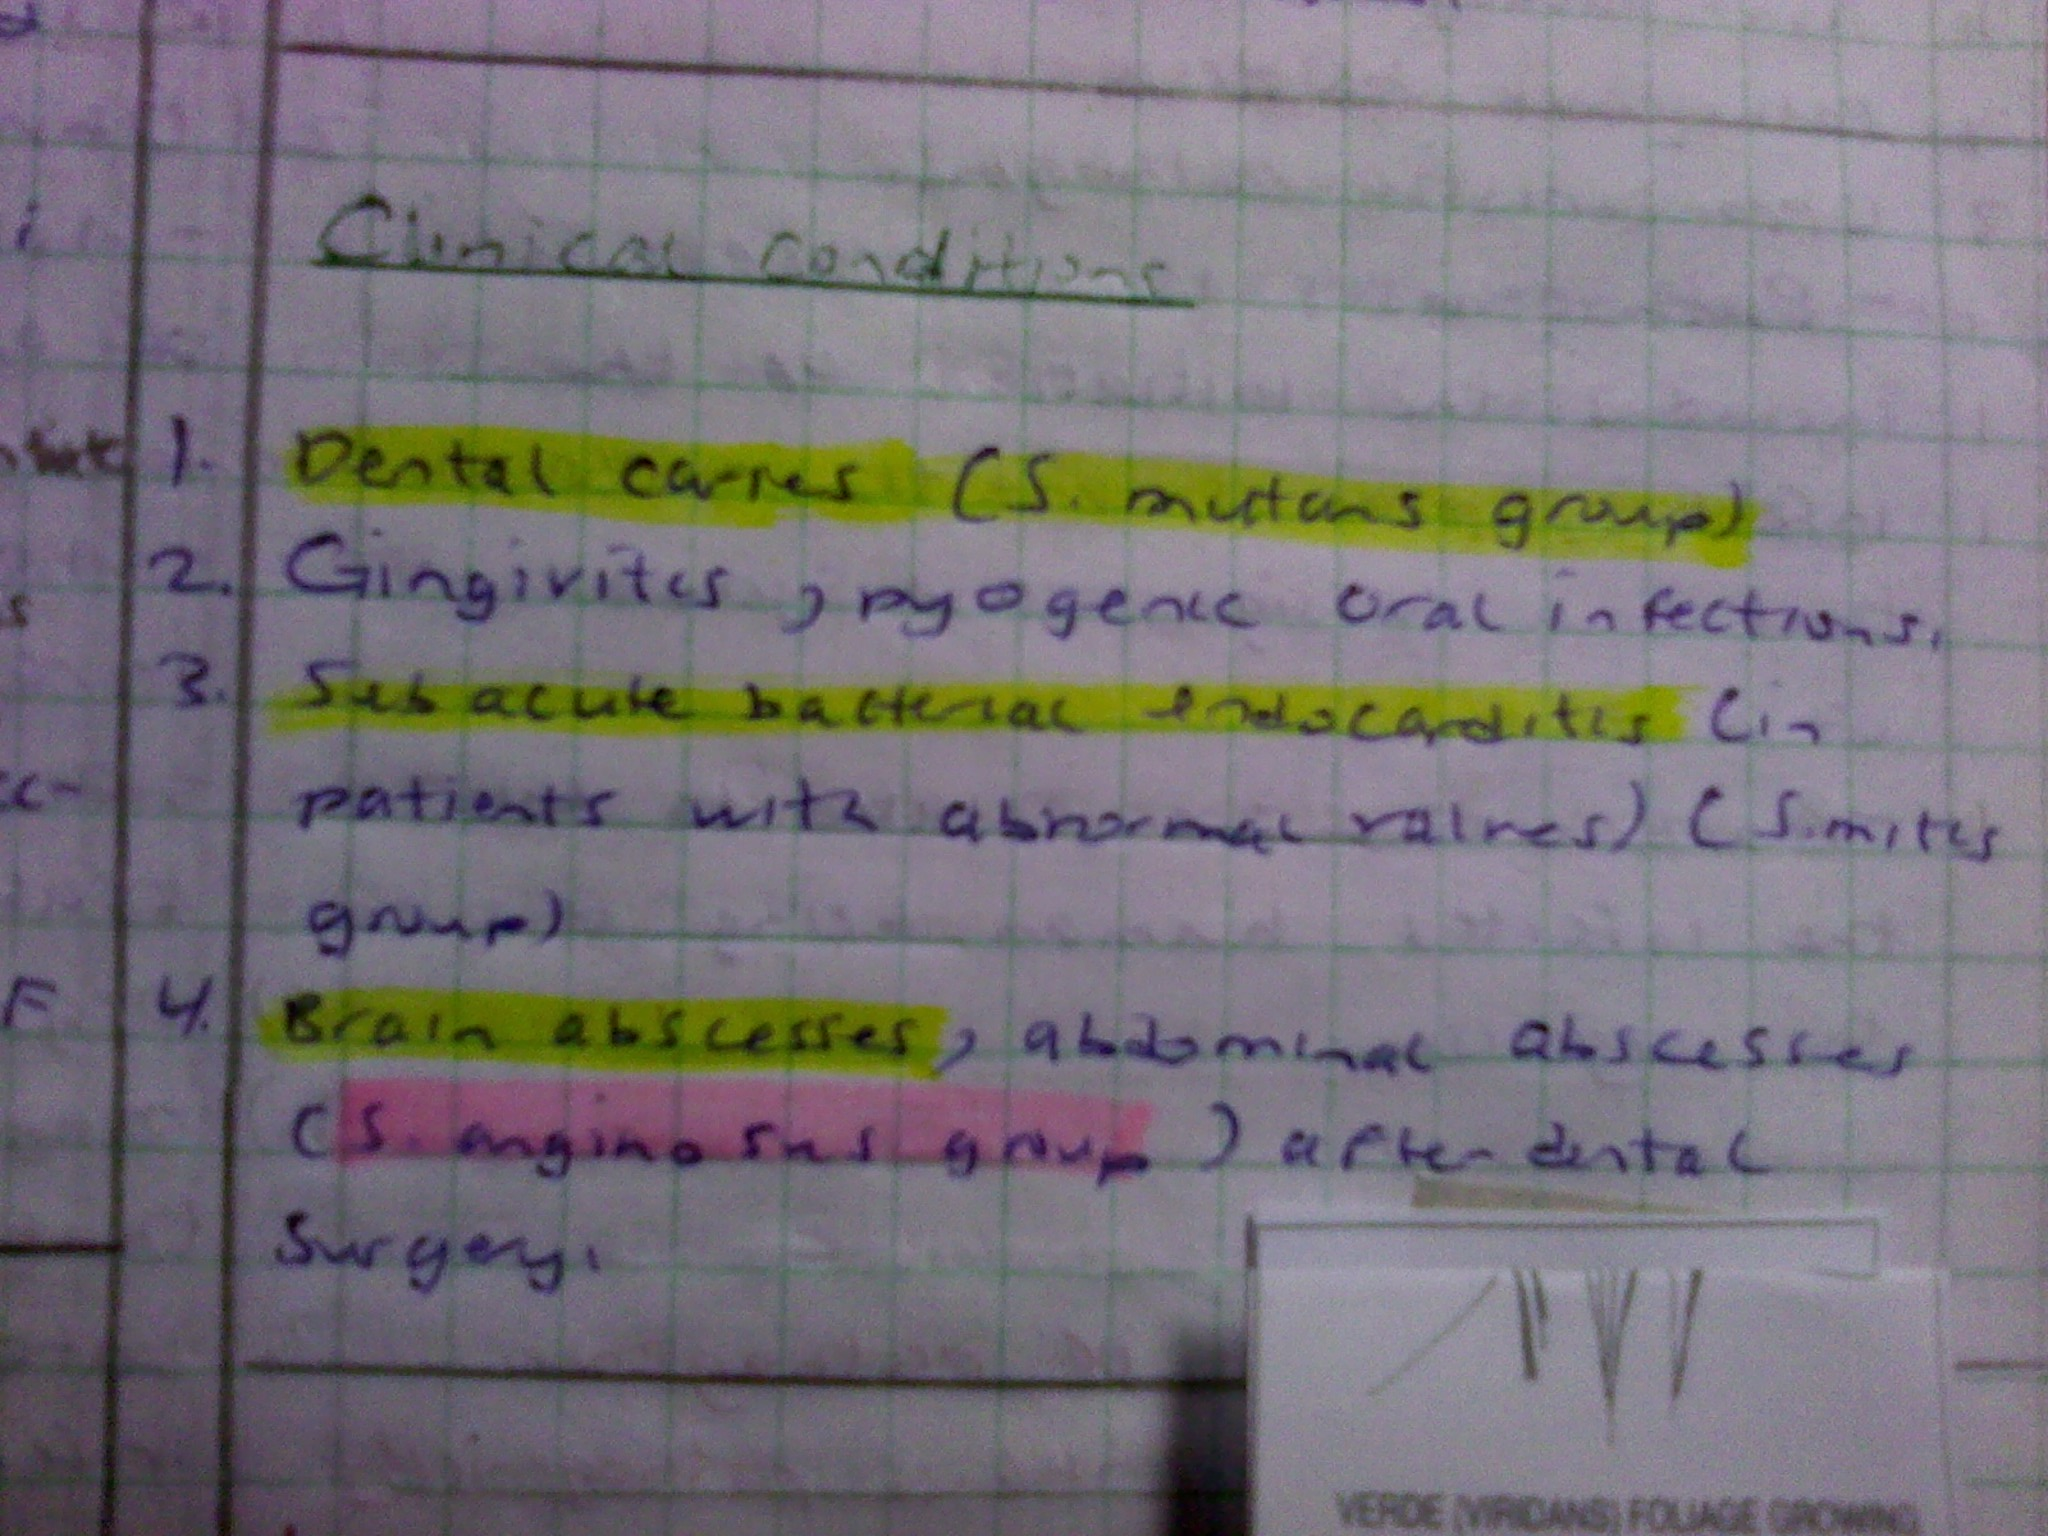 Clinical conditions
1. Dental carries (S. mutans group)
2. Gingivitis, pyogenic oral infections.
3. Subacute bacterial endocarditis (in
patients with abnormal valves) (S. mitis
group)
F 4. Brain abscesses, abdominal abscesses
(S. anginosus group) after dental
Surgery.
VERDE (VIRIDANS) FOLIAGE GROWING